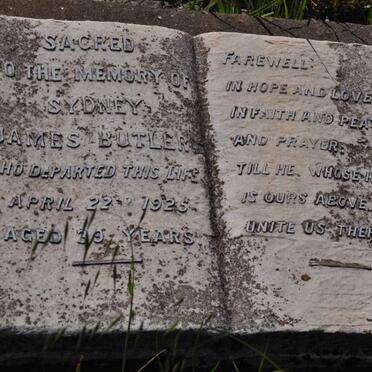 SACRED
TO THE MEMORY OF
SYDNEY
JAMES BUTLER
WHO DEPARTED THIS LIFE
APRIL 22ND 1925
AGED 39 YEARS
FAREWELL:
IN HOPE AND LOVE
IN FAITH AND PEACE
AND PRAYER:
TILL HE, WHOSE
IS OURS ABOVE
UNITE US THERE